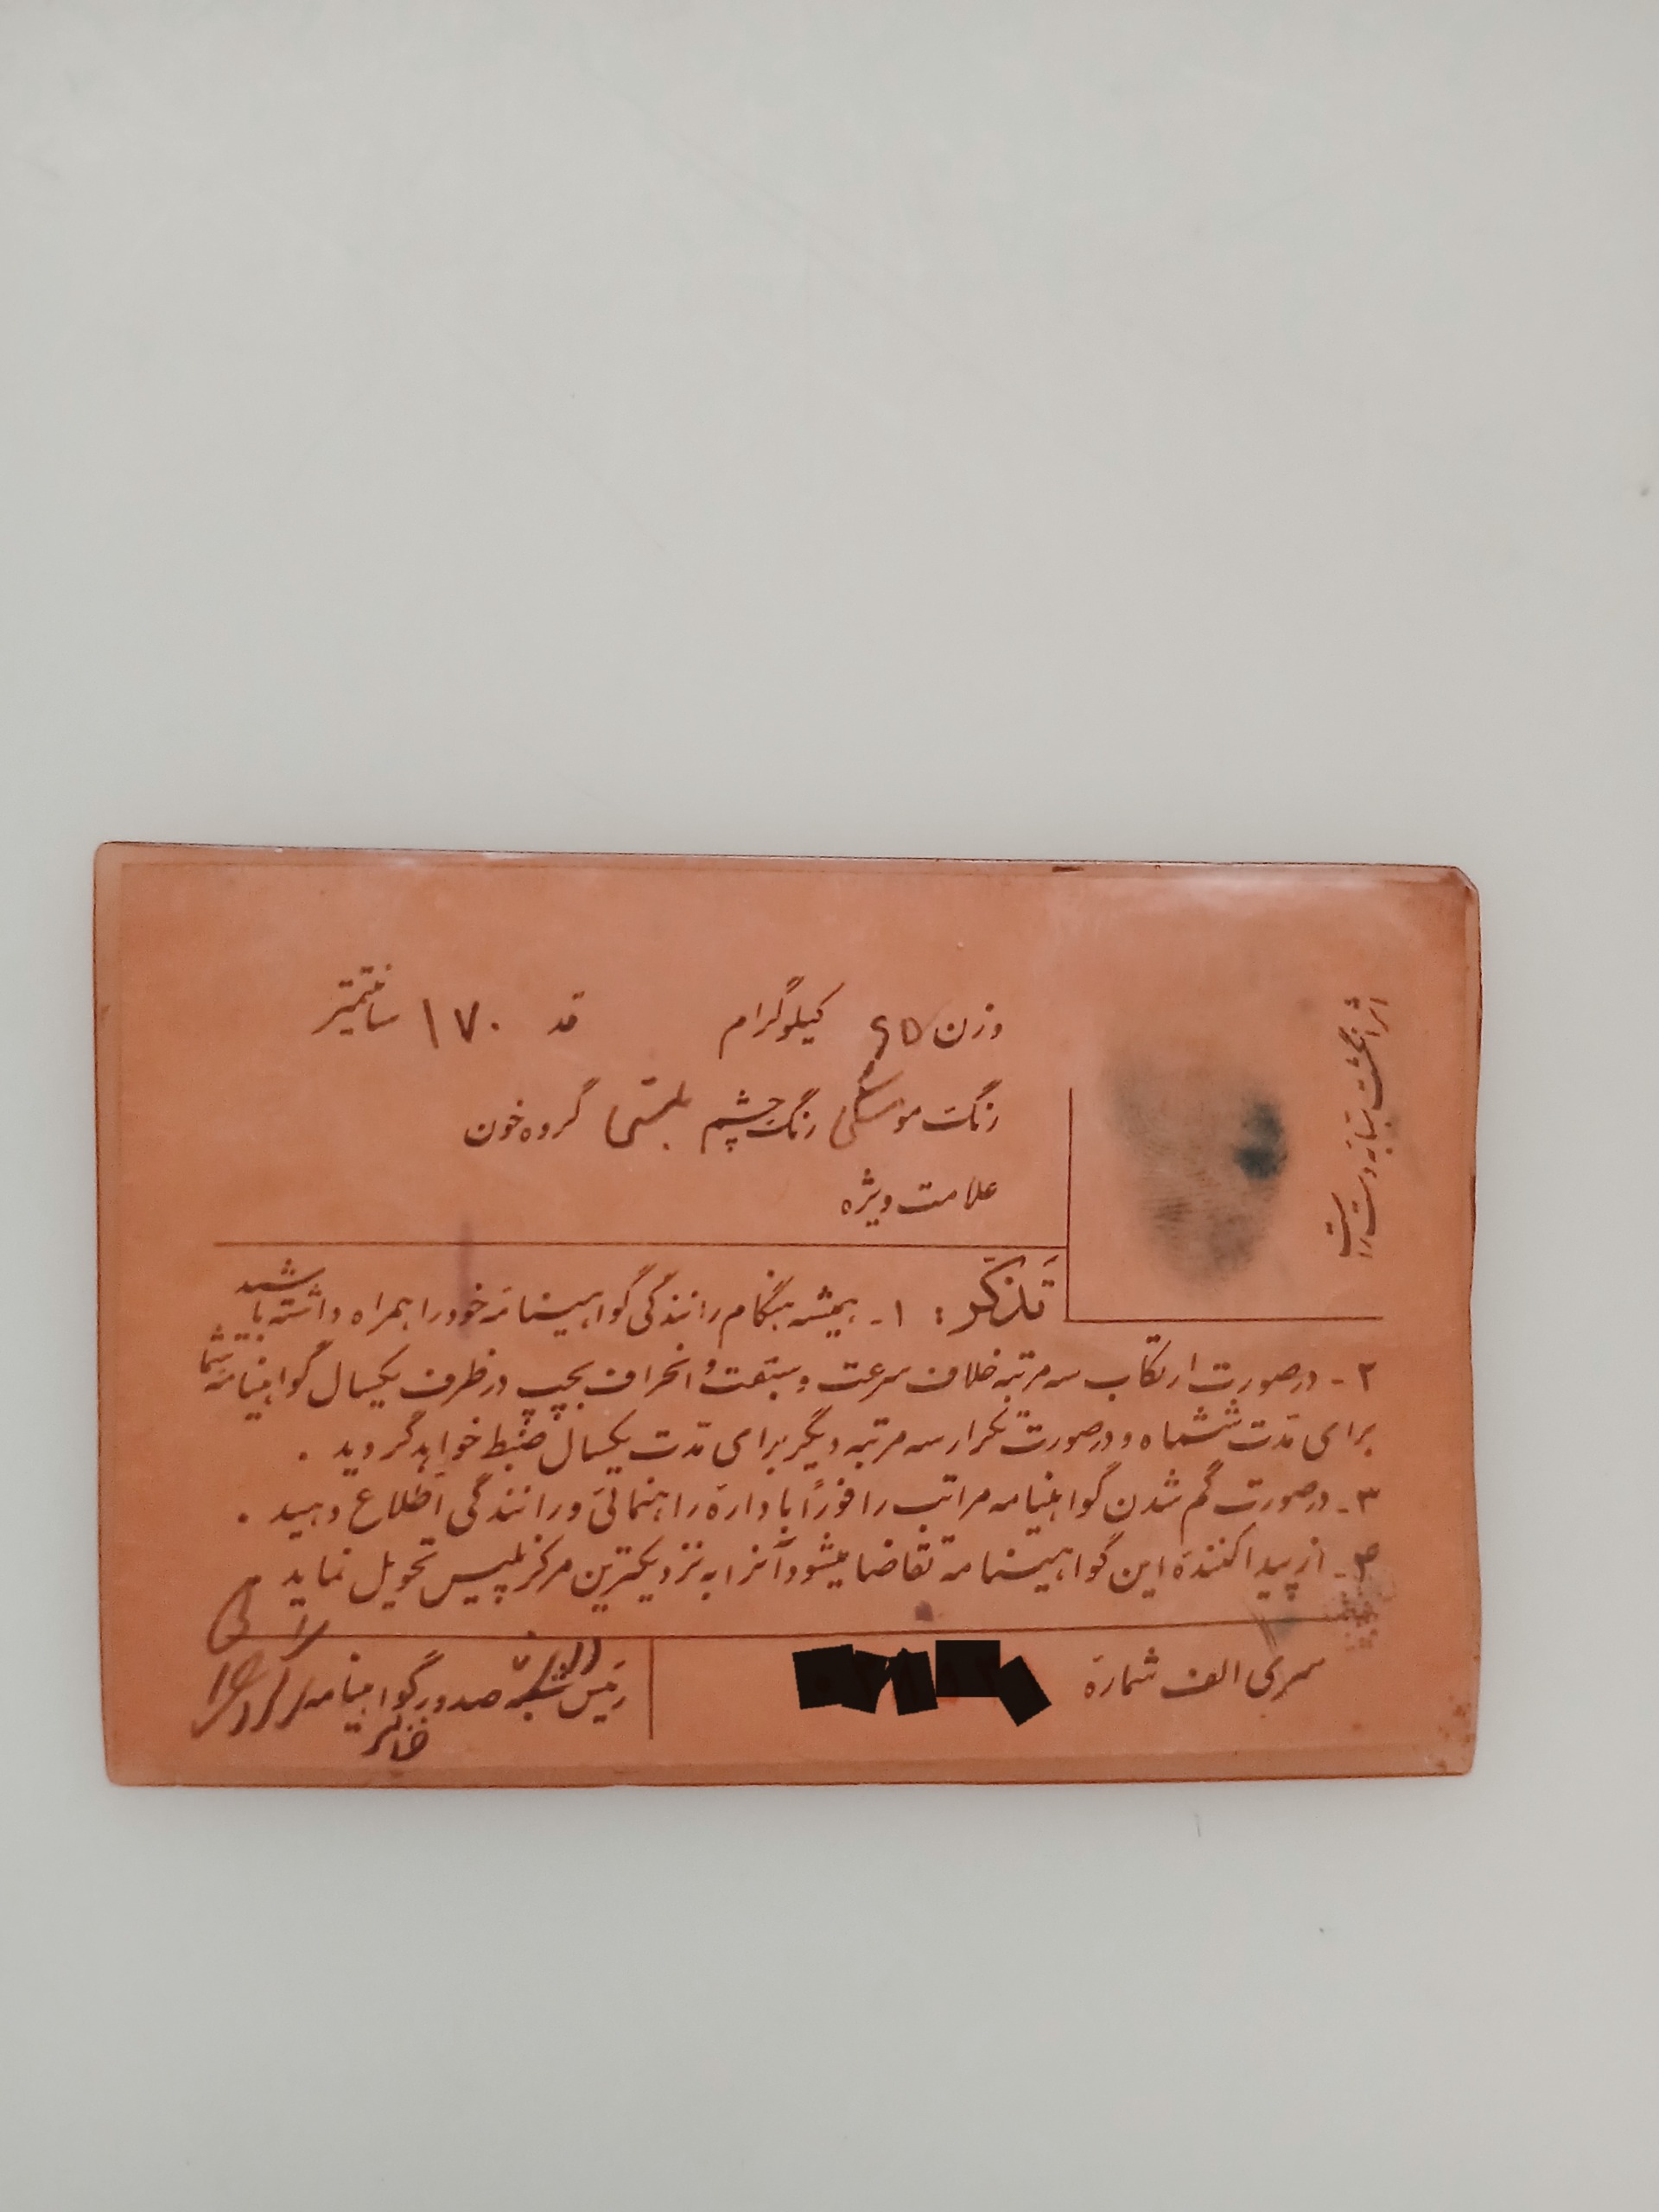 اثر انگشت سبابه دست راست
وزن ۶۵ کیلوگرام قد ۱۷۰ سانتیمتر
رنگ مو مشکی رنگ چشم میشی گروه خون
علامت ویژه
تذکر: ۱- همیشه هنگام رانندگی گواهینامه خود را همراه داشته باشید
۲- در صورت ارتکاب سه مرتبه خلاف سرعت و سبقت و انحراف بچپ در ظرف یکسال گواهینامه شما
برای مدت ششماه و در صورت تکرار سه مرتبه دیگر برای مدت یکسال ضبط خواهد گردید .
۳- در صورت گم شدن گواهینامه مراتب را فوراً باداره راهنمائی و رانندگی اطلاع دهید .
۴- از پیدا کننده این گواهینامه تقاضا میشود آنرا به نزدیکترین مرکز پلیس تحویل نماید
سری الف شماره
رئیس شعبه صدور گواهینامه